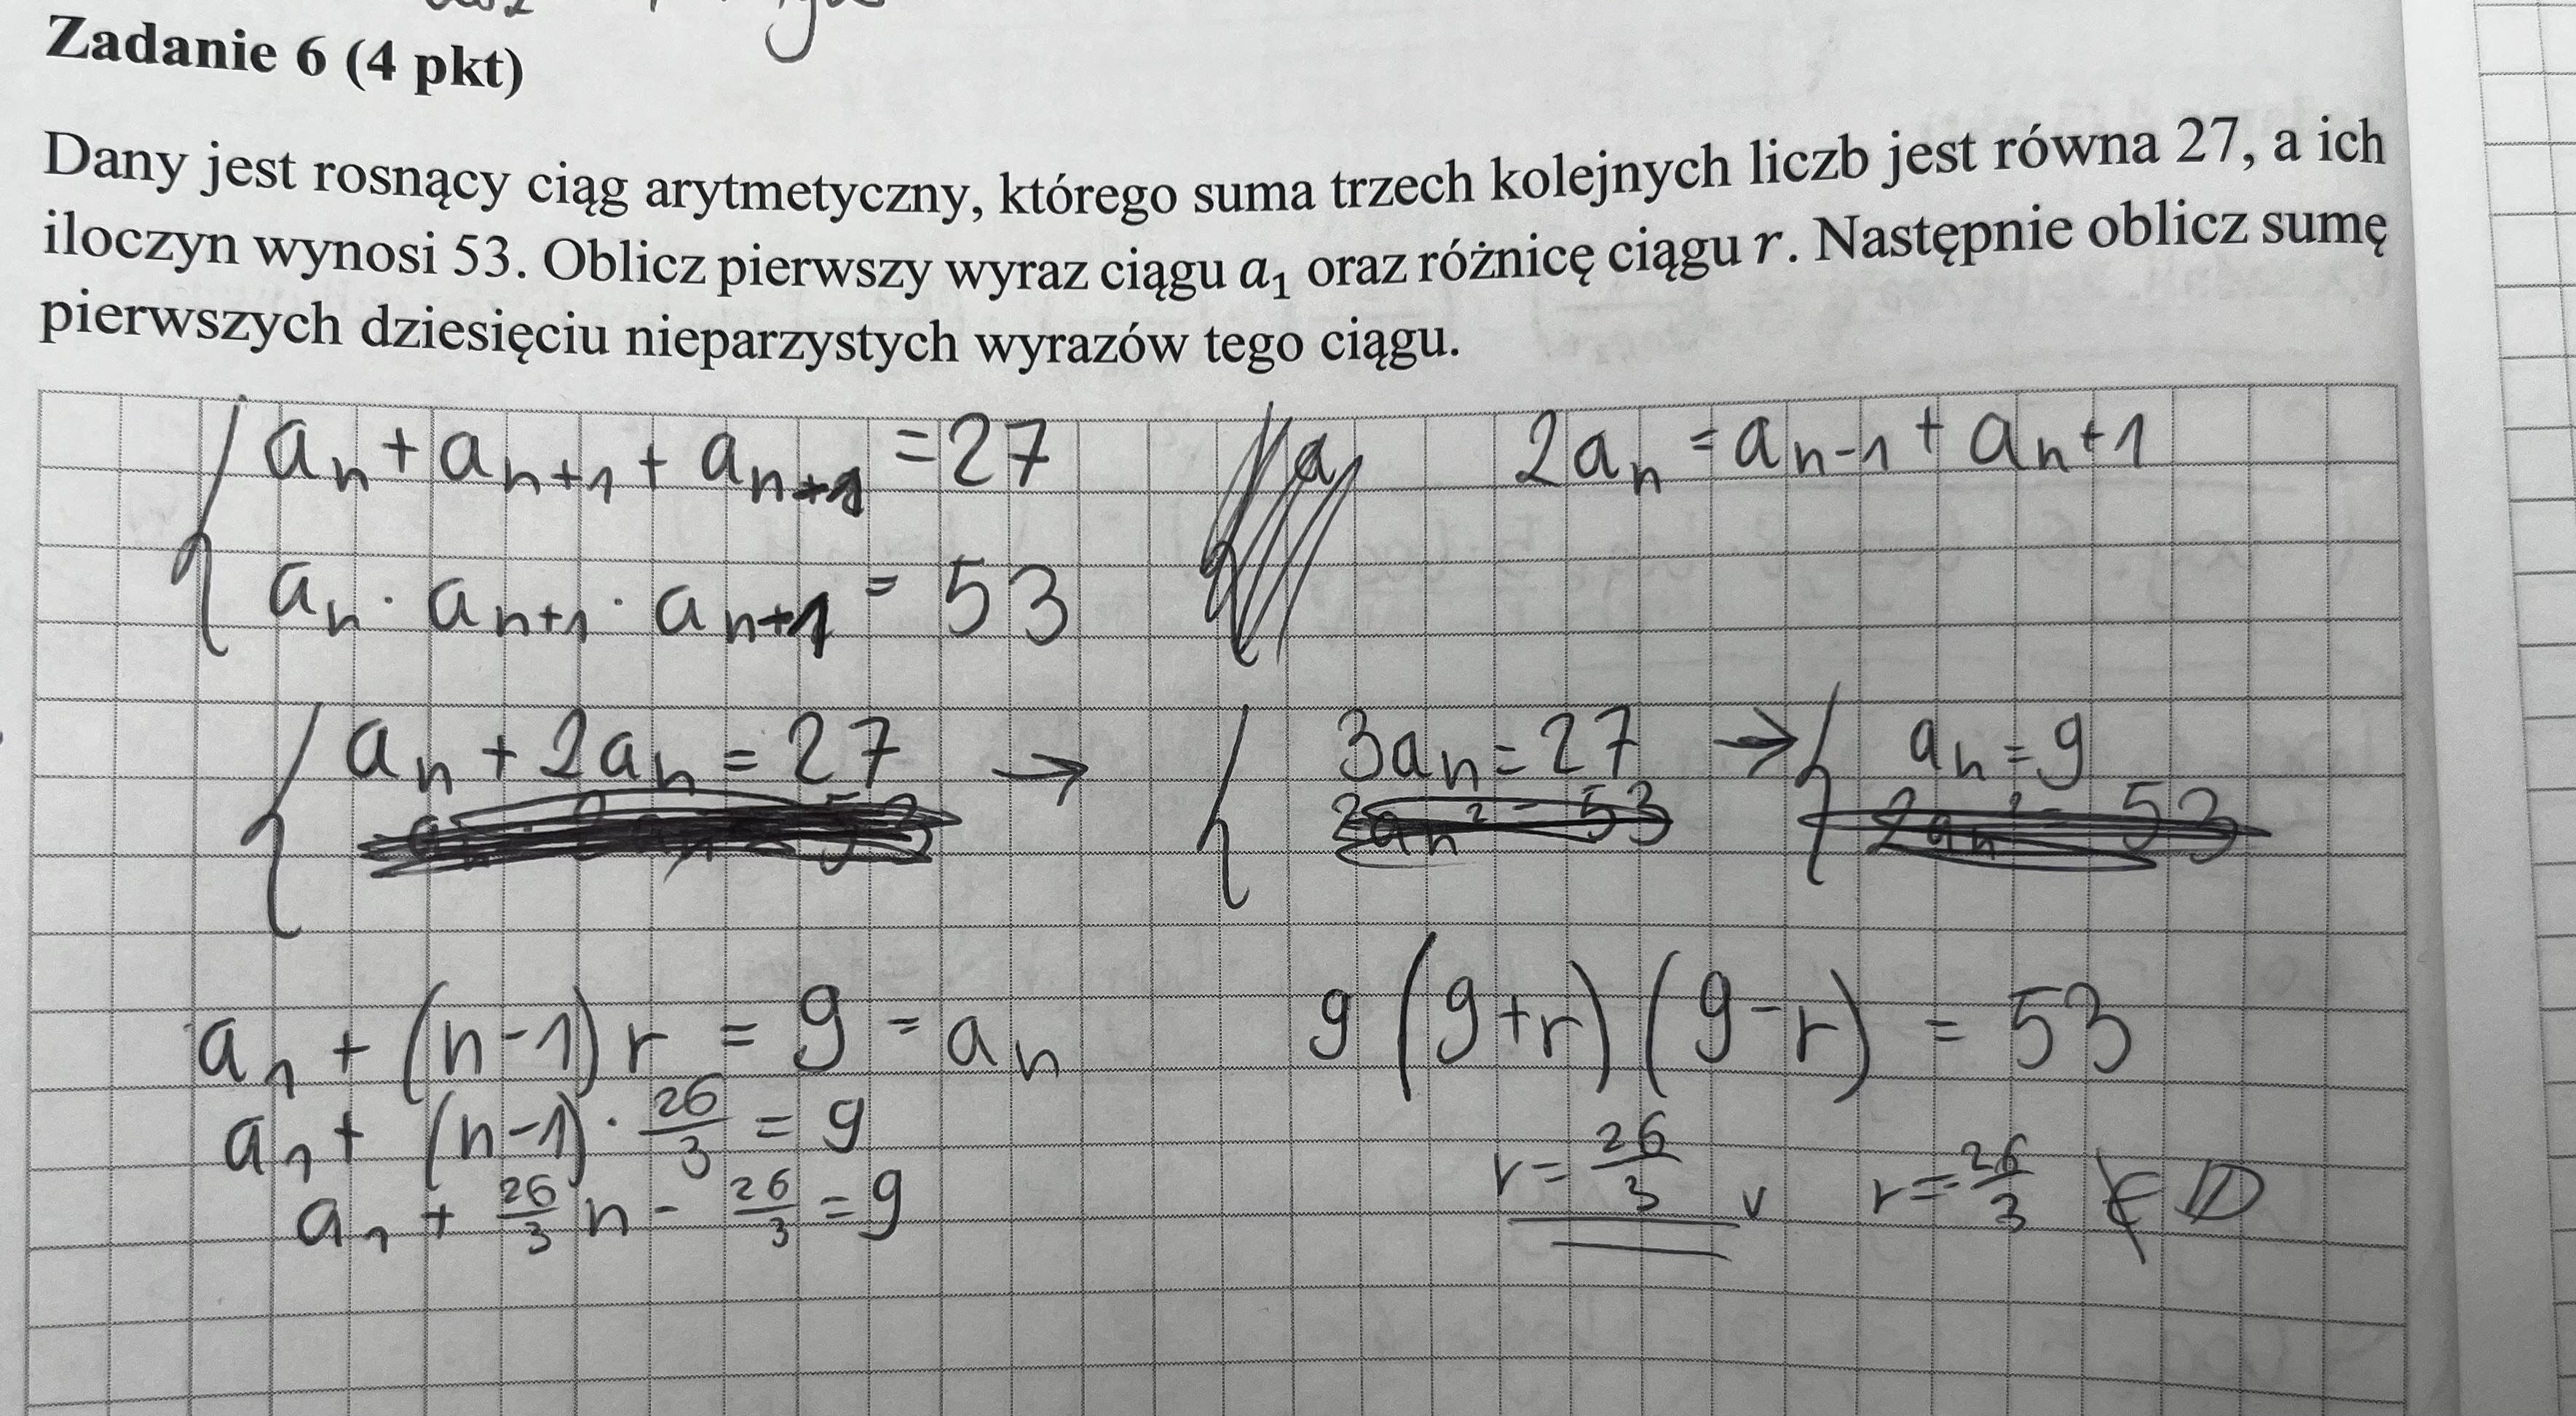 Zadanie 6 (4 pkt)
Dany jest rosnący ciąg arytmetyczny, którego suma trzech kolejnych liczb jest równa 27, a ich
iloczyn wynosi 53. Oblicz pierwszy wyraz ciągu a₁ oraz różnicę ciągu r. Następnie oblicz sumę
pierwszych dziesięciu nieparzystych wyrazów tego ciągu.
{ aₙ + aₙ₊₁ + aₙ₊₁ = 27
2aₙ = aₙ₋₁ + aₙ₊₁
aₙ · aₙ₊₁ · aₙ₊₁ = 53
{ aₙ + 2aₙ = 27 → { 3aₙ = 27 → { aₙ = 9
2aₙ² = 53 2aₙ² = 53
a₁ + (n-1) r = 9 = aₙ
9 (9+r) (9-r) = 53
a₁ + (n-1) · 26/3 = 9
r = 26/3 v r = -26/3 ∉ D
a₁ + 26/3 n - 26/3 = 9